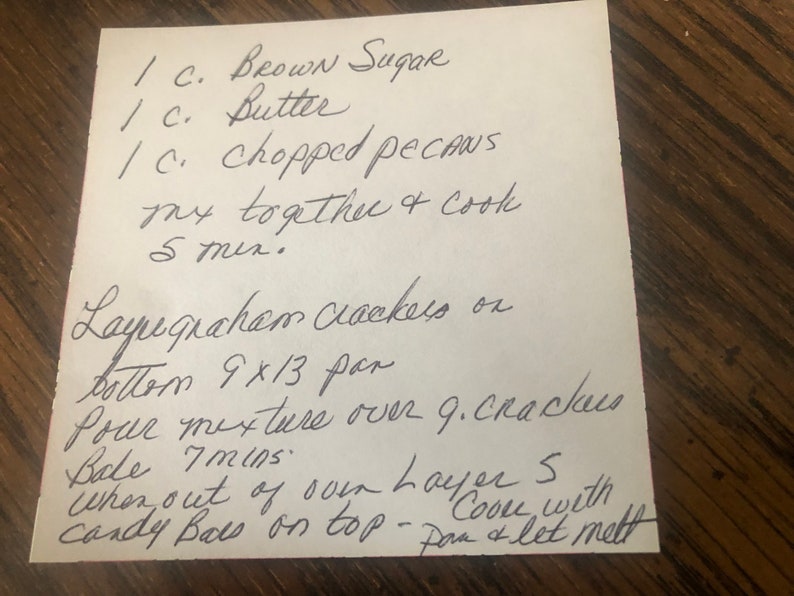 1 c. Brown Sugar
1 c. Butter
1 c. chopped pecans
mix together & cook
5 min.
Layer graham crackers on
bottom 9 x 13 pan
Pour mixture over g. crackers
Bake 7 mins.
when out of oven Layer 5
candy Bars on top - Cover with
pan & let melt